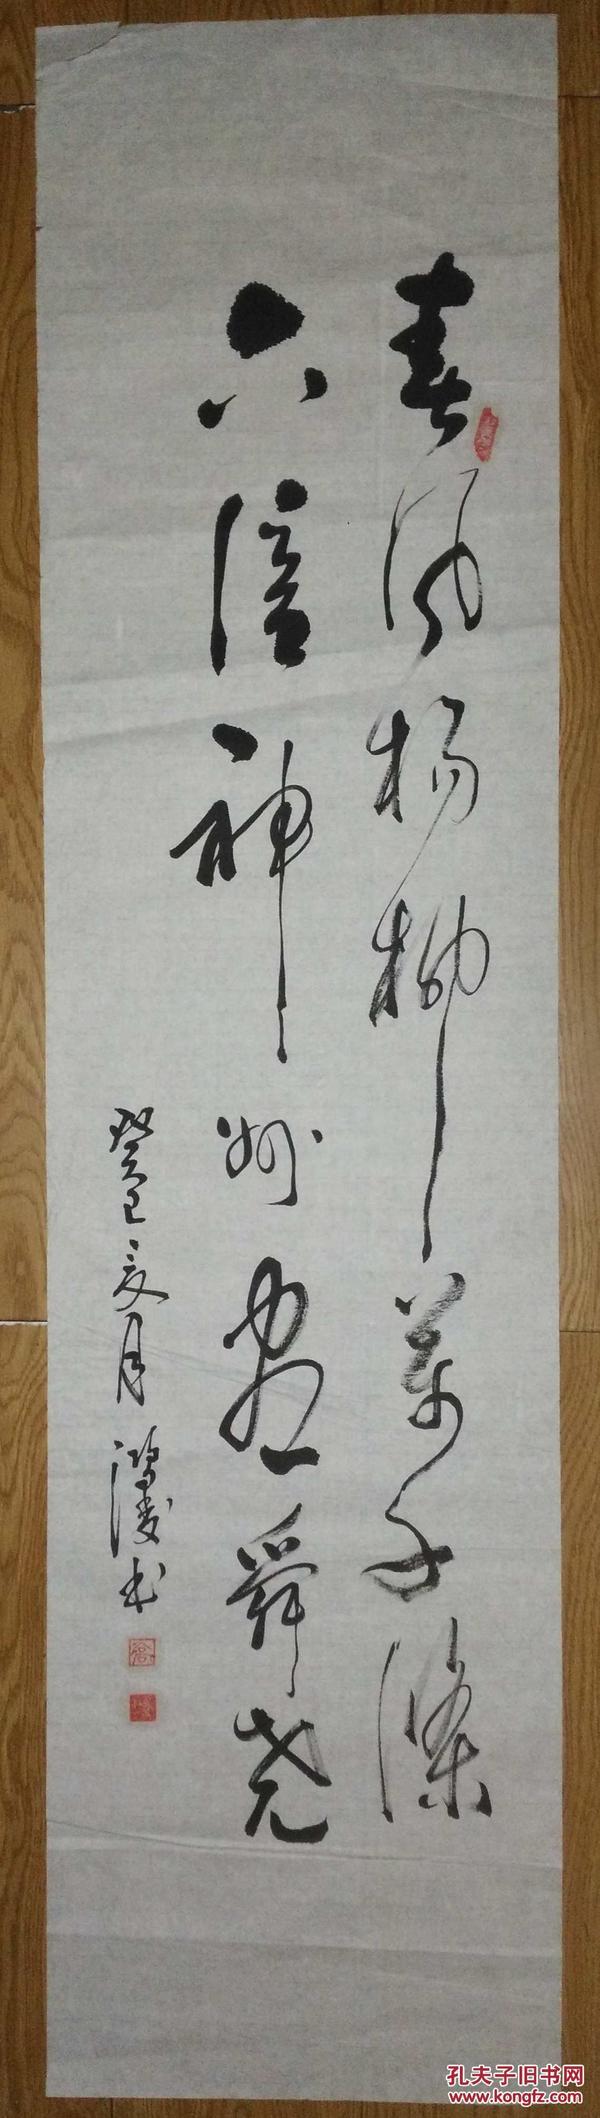 春风杨柳万千條
六億神州尽舜尧
癸巳夏月 鸿凌书
孔夫子旧书网
www.kongfz.com